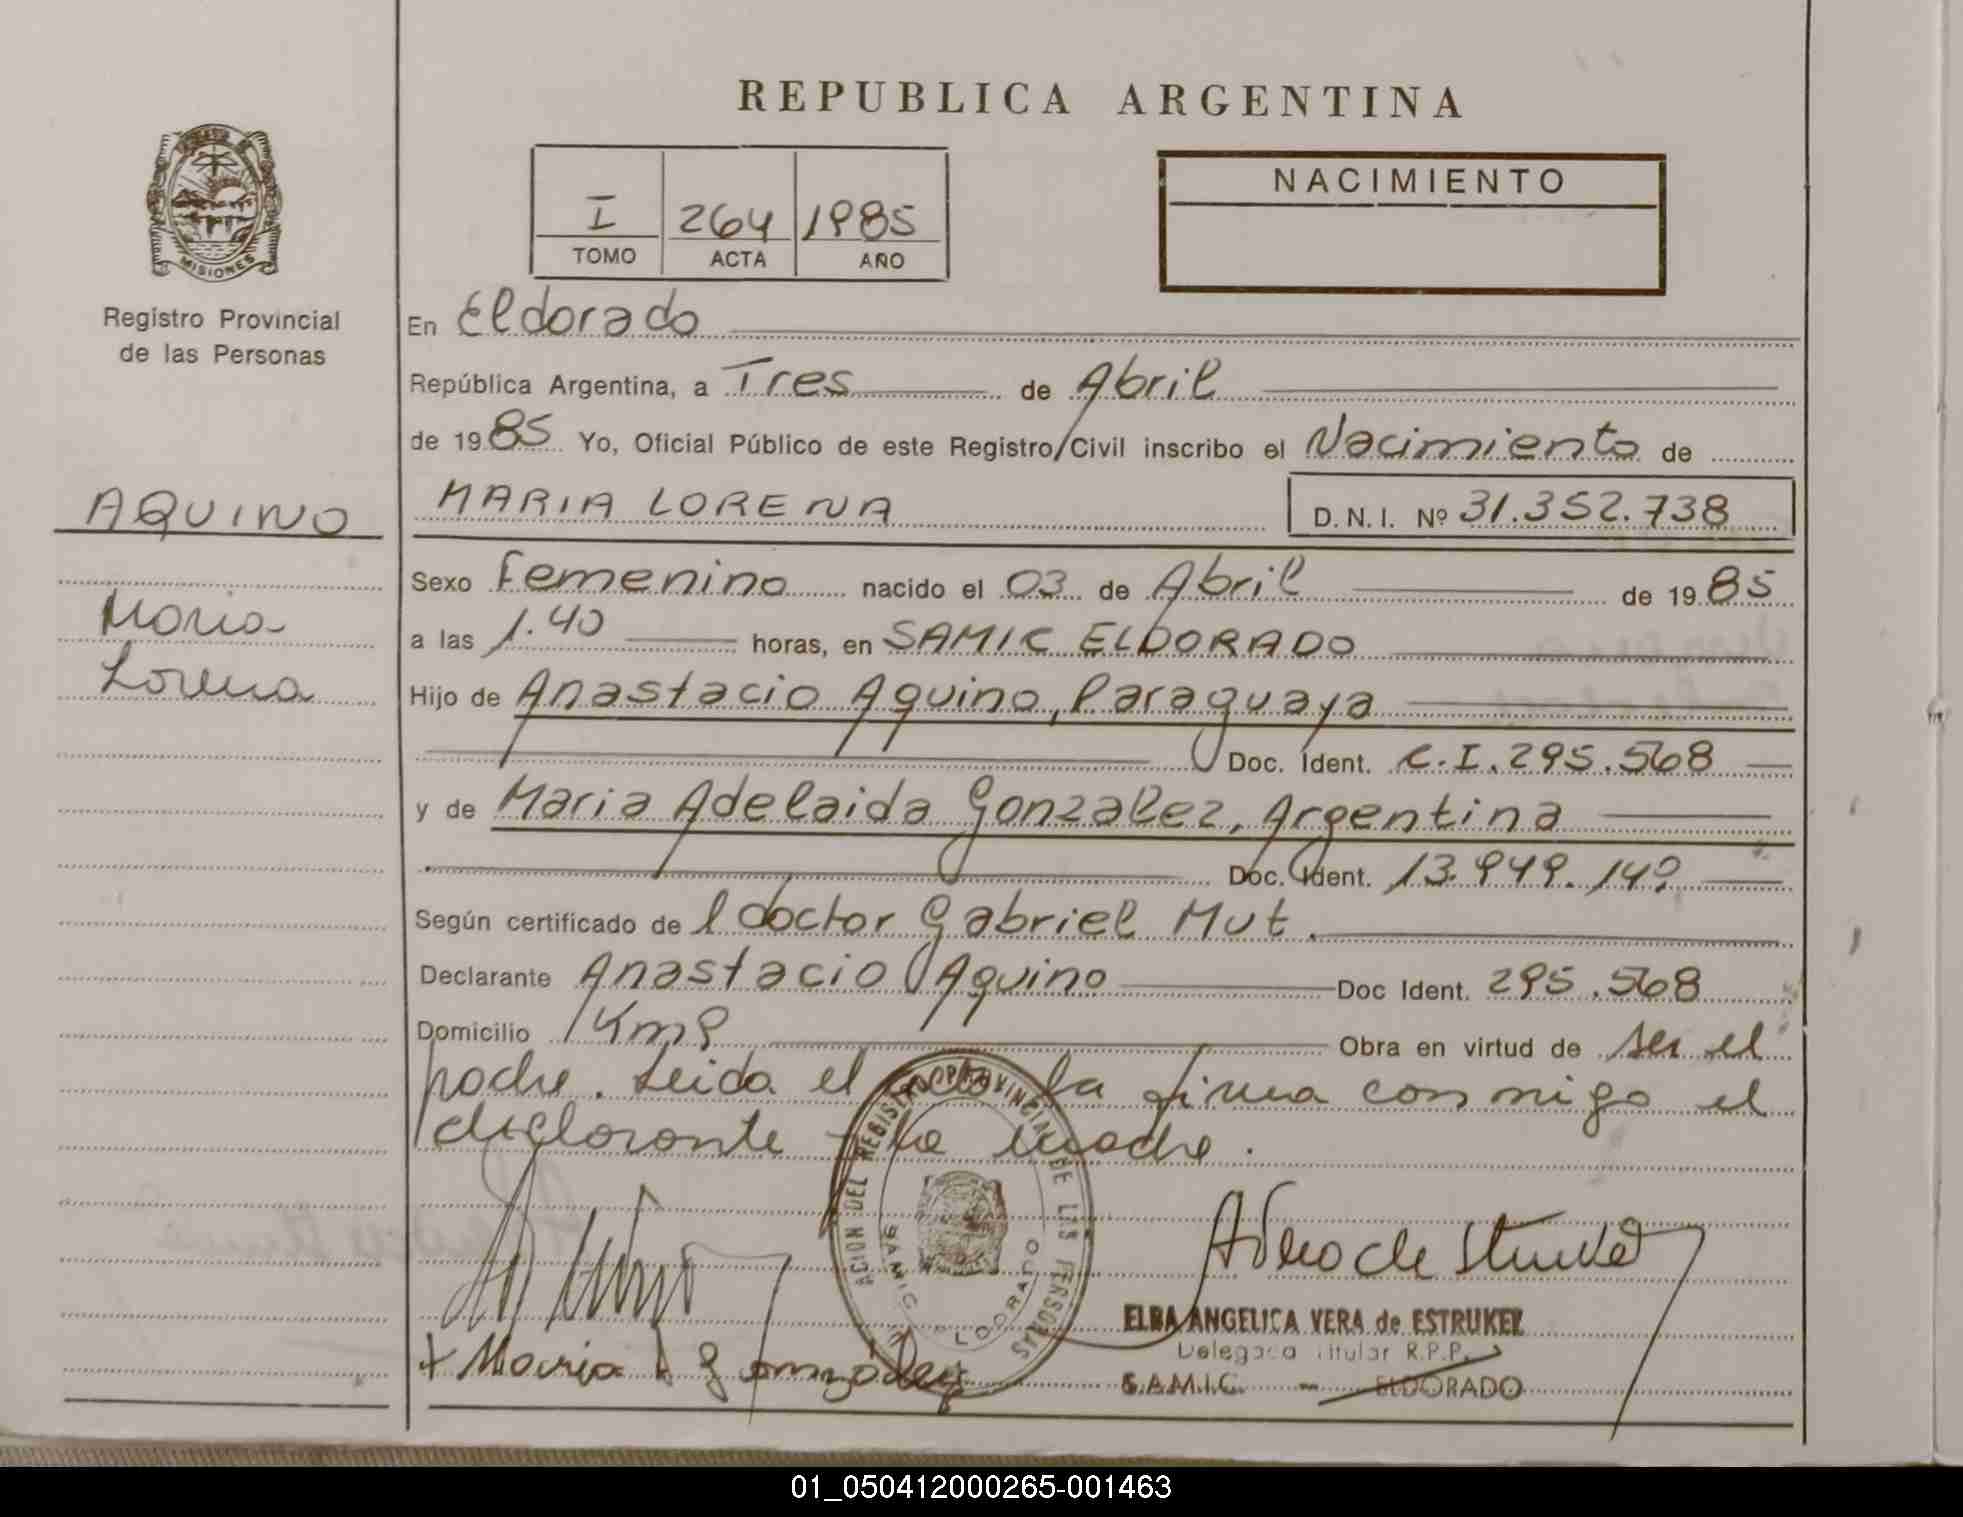 REPUBLICA ARGENTINA
MISIONES
Registro Provincial
de las Personas
I 264 1985
TOMO ACTA AÑO
NACIMIENTO
En Eldorado
República Argentina, a Tres de Abril
de 1985 Yo, Oficial Público de este Registro Civil inscribo el Nacimiento de
AQUINO
Maria
Lorena
MARIA LORENA D.N.I. Nº 31.352.738
Sexo Femenino nacido el 03 de Abril de 1985
a las 1.40 horas, en SAMIC ELDORADO
Hijo de Anastacio Aquino, Paraguaya
Doc. Ident. C.I. 295.568
y de Maria Adelaida Gonzalez, Argentina
Doc. Ident. 13.949.149
Según certificado de l doctor Gabriel Mut.
Declarante Anastacio Aquino Doc Ident. 295.568
Domicilio Km9 Obra en virtud de ser el
padre. Leida el acta firma conmigo el
declarante y la madre.
REGISTRO PROVINCIAL DE LAS PERSONAS
SAMIC ELDORADO
+ Maria A Gonzalez
ELBA ANGELICA VERA de ESTRUKEL
Delegada Titular R.P.P.
S.A.M.I.C. - ELDORADO
01_050412000265-001463